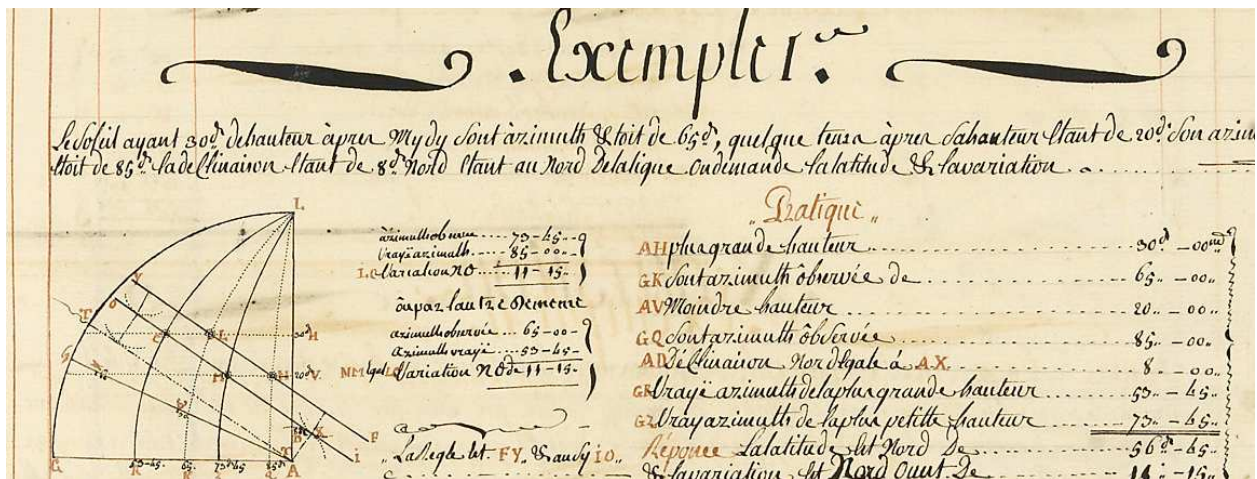 Exemple 1.er
Le Soleil ayant 30.d de hauteur àpres Mydy Sont àzimuth Etoit de 65.d, quelque tems àpres Sa hauteur Etant de 20.d Son azimu
Etoit de 85.d la déClinaison Etant de 8.d Nord Etant au Nord De la ligne On demande la latitude & la variation .
àzimuth observé .... 73 - 45
Vrayë azimuth .... 85 - 00
I.O Variation NO .... 11 - 15
ou par lautre De meme
azimuth observée ... 65 - 00
azimuth vrayë ... 53 - 45
Variation NO de 11 - 15
La Regle Est FY, & aussy IO
Pratique
AH plus grande hauteur .... 30.d - 00.m
GK Sont azimuth ôbservée de .... 65 - 00
AV Moindre hauteur .... 20 - 00
GQ Sont azimuth ôbservée .... 85 - 00
AD DéClinaison Nord Egale á AX .... 8 - 00
GR Vrayë azimuth de la plus grande hauteur .... 53 - 45
GZ Vray azimuth de la plus petitte hauteur .... 73 - 45
Réponce La latitude Est Nord De .... 56.d - 45
& la variation Est Nord Ouest De .... 11 - 15
L
Y
O
T
S
C
L
30.d
H
M
N
20.d
V
B
X
F
I
G
R
53-45
65
73-45
85.d
A